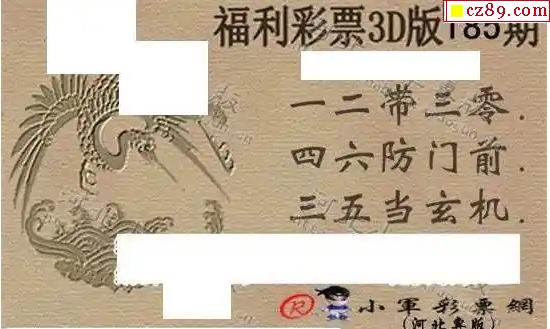 cz89.com
福利彩票3D版185期
一二带三零.
四六防门前.
三五当玄机.
R 小軍彩票網
(河北專版)